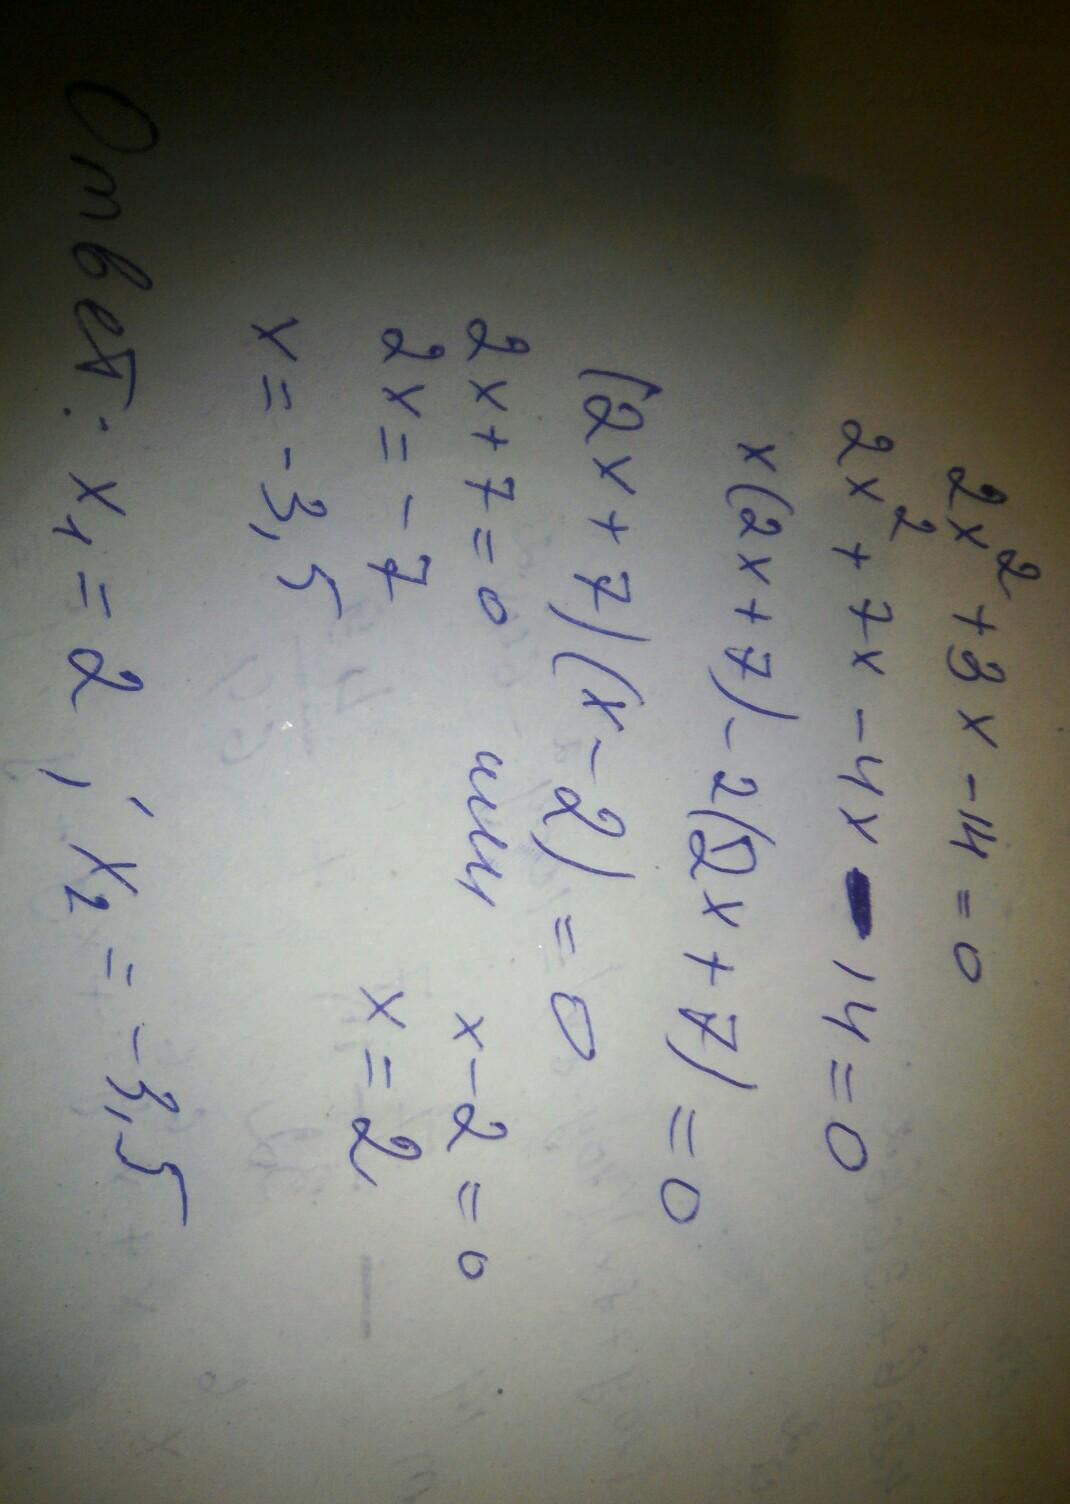 2x² + 3x - 14 = 0
2x² + 7x - 4x - 14 = 0
x(2x + 7) - 2(2x + 7) = 0
(2x + 7)(x - 2) = 0
2x + 7 = 0 или x - 2 = 0
2x = -7 x = 2
x = -3,5
Ответ: x₁ = 2, x₂ = -3,5